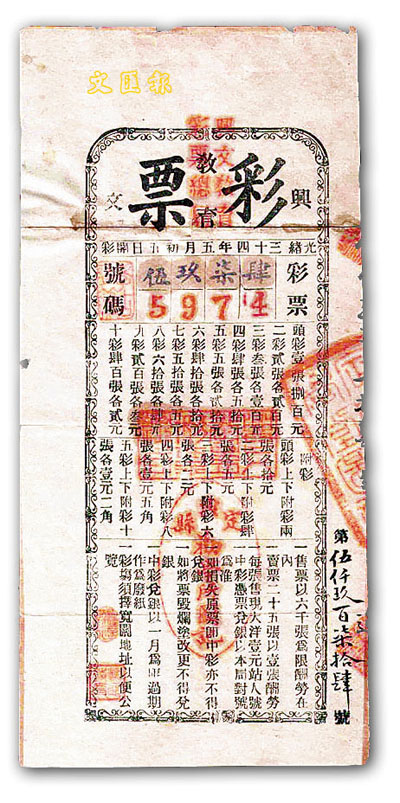 文匯報
興文教育
彩票
光緒三十四年五月初五日開彩
彩票號碼
伍玖柒肆
5974
頭彩壹張捌百元
二彩貳張各貳百元
三彩叁張各壹百元
四彩肆張各五拾元
五彩伍張各貳拾元
六彩肆拾張各拾元
七彩五拾張各五元
八彩六拾張各肆元
九彩貳百張各叁元
十彩肆百張各貳元
附彩
頭彩上下附彩兩
張各拾元
二彩上下附彩肆
張各五元
三彩上下附彩六
張各三元
四彩上下附彩八
張各壹元五角
五彩上下附彩十
張各壹元二角
一售票以六千張為限酬勞在
內
一賣票二十五張以壹張酬勞
一每張售現大洋壹元站人號
一中彩憑票兌銀以本局對號
為準
一如損失原票即中彩亦不得
兌銀
一如將票毀爛塗改更不得兌
銀
一中彩兌銀以一月為期過期
作為廢紙
一彩場須擇寬闊地址以便公
覽
第伍仟玖百柒拾肆號
興文教育
彩票總局